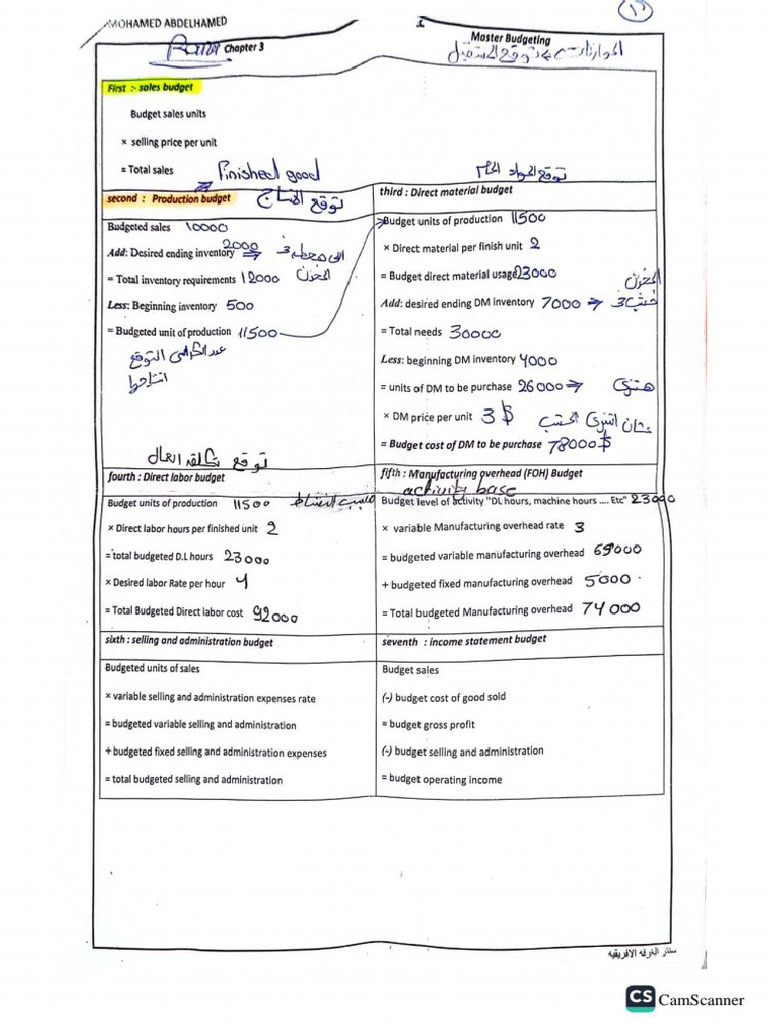 MOHAMED ABDELHAMED
Chapter 3
Master Budgeting
First :- sales budget
Budget sales units
× selling price per unit
= Total sales
Finished good
توقع المواد الخام
second : Production budget
توقع الانتاج
Budgeted sales 10000
Add: Desired ending inventory 2000
المخزن
= Total inventory requirements 12000
Less: Beginning inventory 500
= Budgeted unit of production 11500
third : Direct material budget
Budget units of production 11500
× Direct material per finish unit 2
= Budget direct material usage 23000
المخزن
Add: desired ending DM inventory 7000 خشب
= Total needs 30000
Less: beginning DM inventory 4000
= units of DM to be purchase 26000
× DM price per unit 3 $
= Budget cost of DM to be purchase 78000 $
توقع تكلفه العمال
fourth : Direct labor budget
Budget units of production 11500
× Direct labor hours per finished unit 2
= total budgeted D.L hours 23000
× Desired labor Rate per hour 4
= Total Budgeted Direct labor cost 92000
fifth : Manufacturing overhead (FOH) Budget
activity base
Budget level of activity "DL hours, machine hours .... Etc" 23000
× variable Manufacturing overhead rate 3
= budgeted variable manufacturing overhead 69000
+ budgeted fixed manufacturing overhead 5000
= Total budgeted Manufacturing overhead 74000
sixth : selling and administration budget
Budgeted units of sales
× variable selling and administration expenses rate
= budgeted variable selling and administration
+ budgeted fixed selling and administration expenses
= total budgeted selling and administration
seventh : income statement budget
Budget sales
(-) budget cost of good sold
= budget gross profit
(-) budget selling and administration
= budget operating income
سنتر الغرفه الافريقيه
CS CamScanner